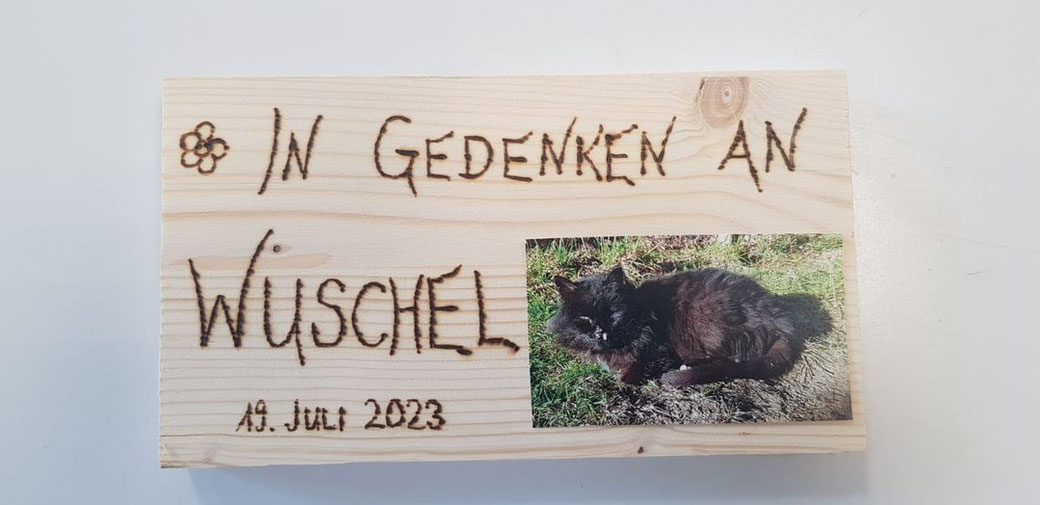 IN GEDENKEN AN
WUSCHEL
19. Juli 2023